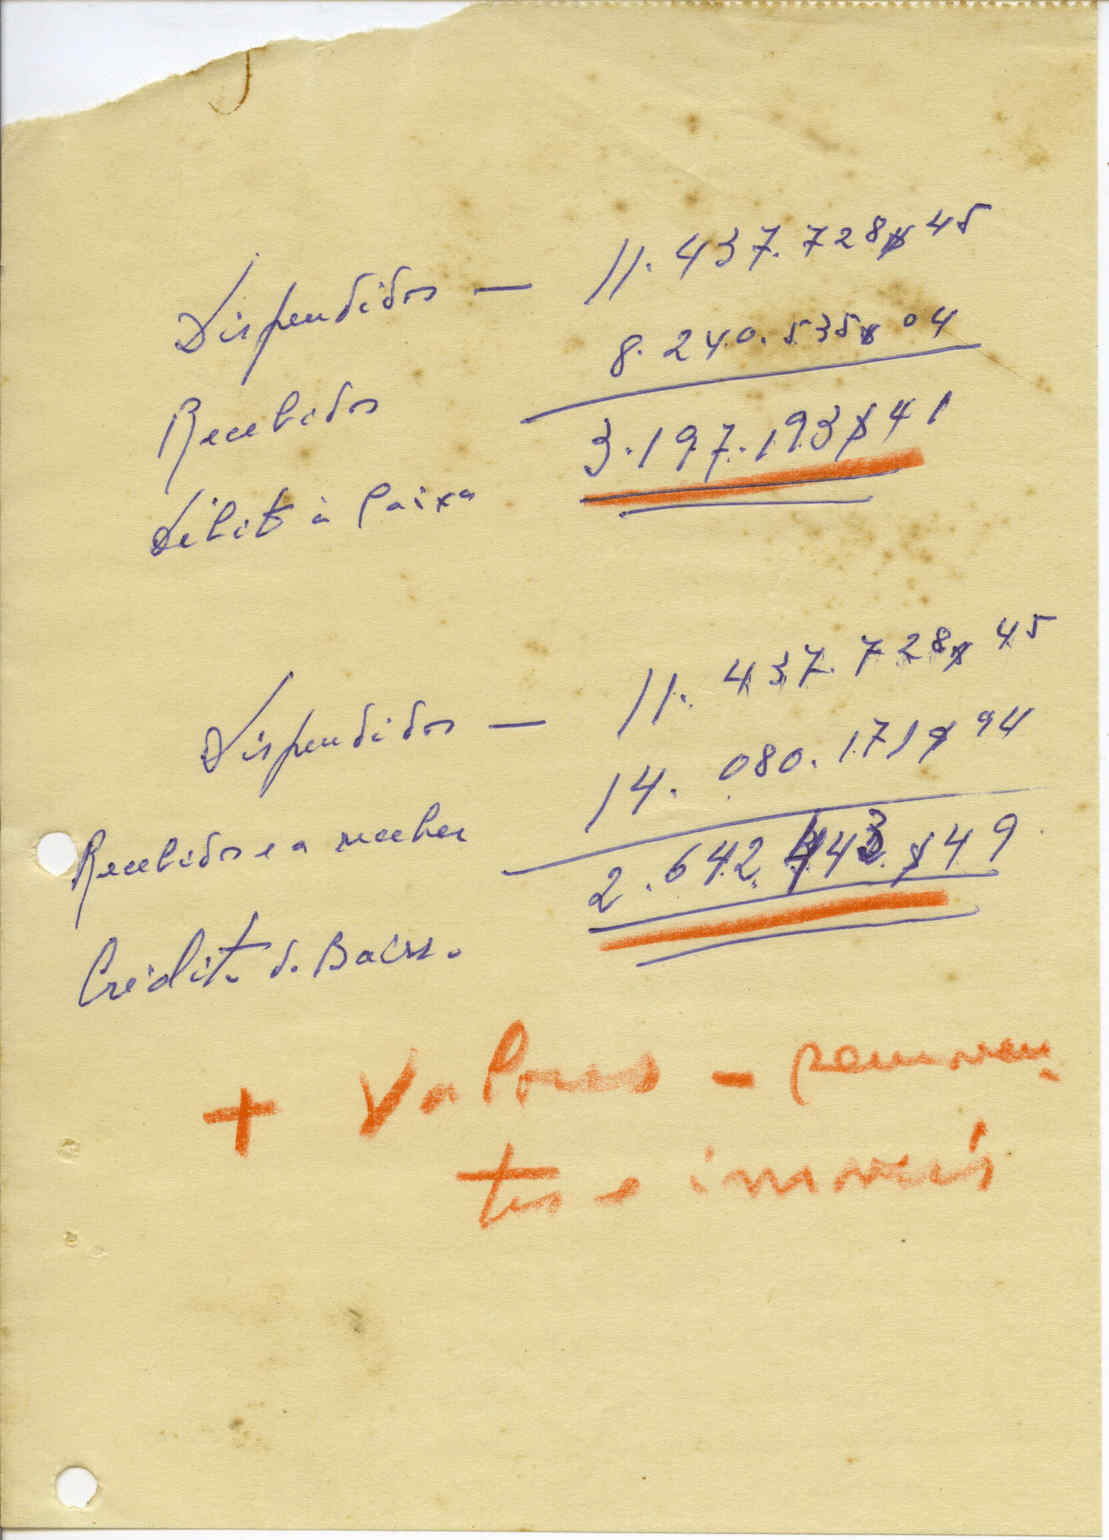 Dispendidos — 11.437.728$45
Recebidos 8.240.535$04
Débito à Caixa 3.197.193$41
Dispendidos — 11.437.728$45
Recebidos e a receber 14.080.171$94
Crédito do 2.642.443.$49
+ Valores - semoven
tes e imoveis